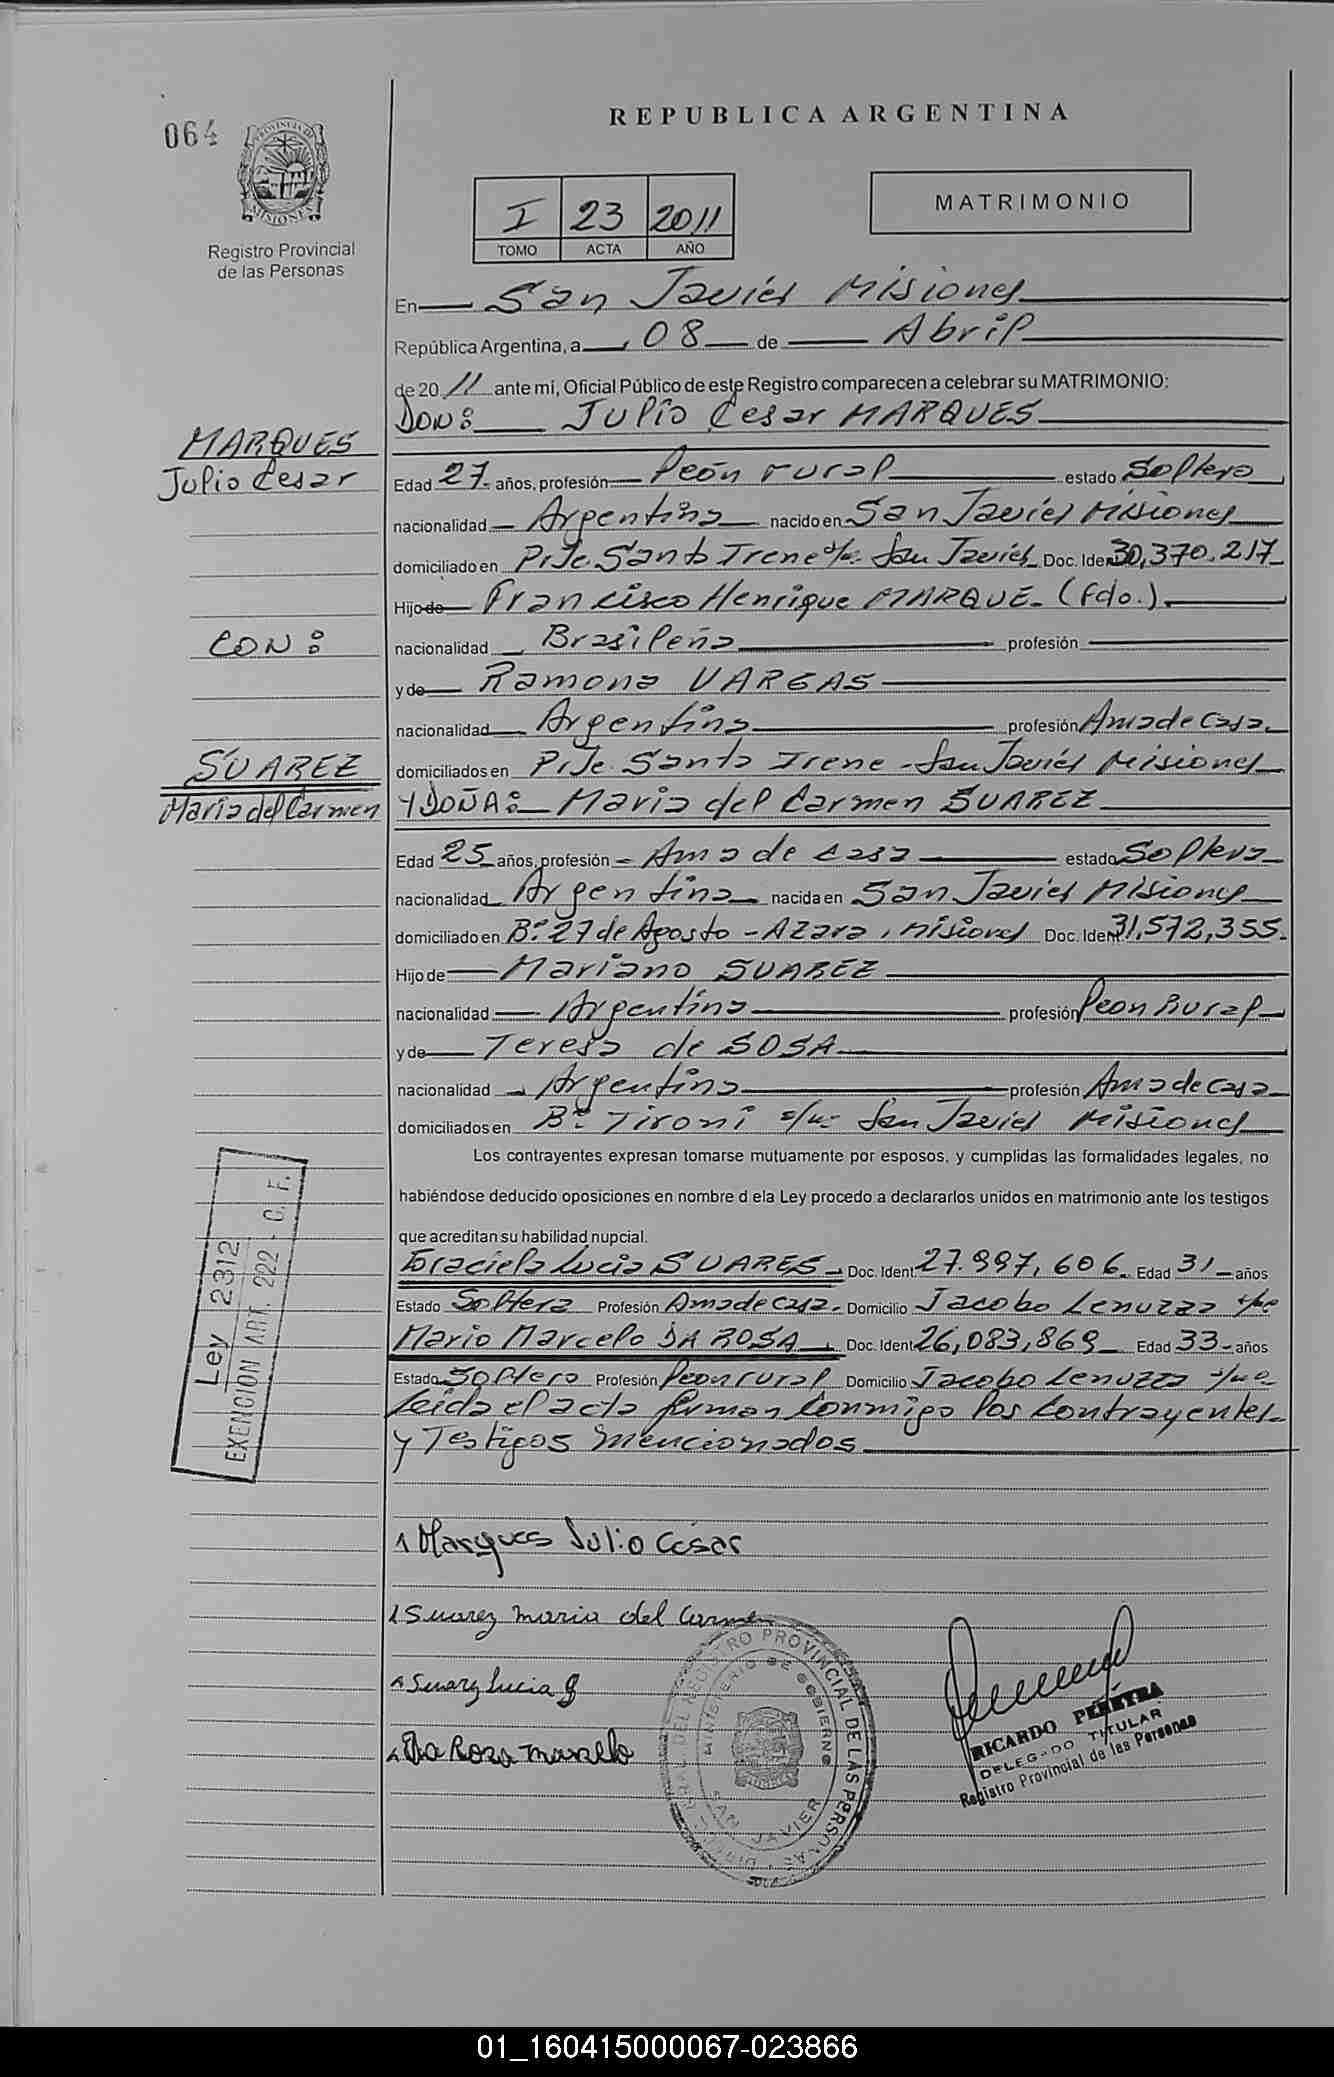 064
REPUBLICA ARGENTINA
PROVINCIA DE MISIONES
Registro Provincial
de las Personas
I 23 2011
TOMO ACTA AÑO
MATRIMONIO
En San Javiér Misiones
República Argentina, a 08 de Abril
de 2011 ante mi, Oficial Público de este Registro comparecen a celebrar su MATRIMONIO:
DON: Julio Cesar MARQUES
MARQUES
Julio Cesar
Edad 27 años, profesión Peón rural estado Soltero
nacionalidad Argentina nacido en San Javiér Misiones
domiciliado en Pje. Santa Irene s/n. San Javiér Doc. Iden 30,370.217
Hijo de Francisco Henrique MARQUE. (fdo.)
CON:
nacionalidad Brasileña profesión
y de Ramona VARGAS
nacionalidad Argentina profesión Ama de Casa.
SUAREZ
Maria del Carmen
domiciliados en Pje. Santa Irene - San Javiér Misiones
Y DOÑA: Maria del Carmen SUAREZ
Edad 25 años, profesión Ama de casa estado Soltera
nacionalidad Argentina nacida en San Javiér Misiones
domiciliado en B° 27 de Agosto - Azara, Misiones Doc. Ident 31,572,355.
Hijo de Mariano SUAREZ
nacionalidad Argentina profesión Peon Rural
y de Teresa de SOSA
nacionalidad Argentina profesión Ama de Casa
domiciliados en B° Tironi s/n. San Javiér Misiones
Los contrayentes expresan tomarse mutuamente por esposos, y cumplidas las formalidades legales, no
habiéndose deducido oposiciones en nombre d ela Ley procedo a declararlos unidos en matrimonio ante los testigos
que acreditan su habilidad nupcial.
Ley 2312
EXENCION ART. 222 - C. F.
Graciela Lucia SUARES Doc. Ident. 27.997,606. Edad 31 años
Estado Soltera Profesión Ama de casa. Domicilio Jacobo Lenuzza s/n°
Mario Marcelo DA ROSA Doc. Ident 26,083,869 Edad 33 años
Estado Soltero Profesión Peon rural Domicilio Jacobo Lenuzza s/n°
Leida el acta firman conmigo los contrayentes
y Testigos mencionados
Marques Julio César
Suarez maria del Carmen
Suarez Lucia G
Da Rosa marcelo
REGISTRO PROVINCIAL DE LAS PERSONAS
MINISTERIO DE GOBIERNO
SAN JAVIER
RICARDO PEREYRA
DELEGADO TITULAR
Registro Provincial de las Personas
01_160415000067-023866